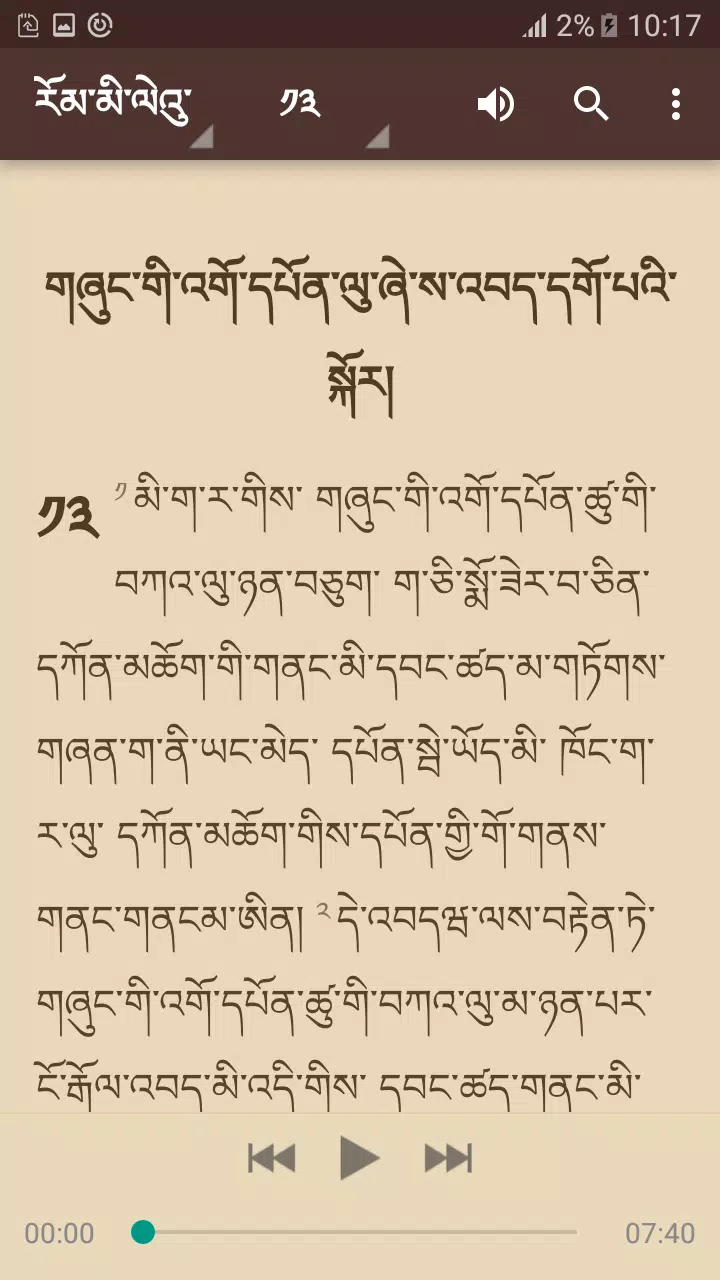 2% 10:17
རོམ་མི་ལེའུ་ ༡༣
གཞུང་གི་འགོ་དཔོན་ལུ་ཞེ་ས་འབད་དགོ་པའི་
སྐོར།
༡༣ ༡ མི་ག་ར་གིས་ གཞུང་གི་འགོ་དཔོན་ཚུ་གི་
བཀའ་ལུ་ཉན་བཅུག་ ག་ཅི་སྨོ་ཟེར་བ་ཅིན་
དཀོན་མཆོག་གི་གནང་མི་དབང་ཚད་མ་གཏོགས་
གཞན་ག་ནི་ཡང་མེད་ དཔོན་སྡེ་ཡོད་མི་ ཁོང་ག་
ར་ལུ་ དཀོན་མཆོག་གིས་དཔོན་གྱི་གོ་གནས་
གནང་གནངམ་ཨིན། ༢ དེ་འབདཝ་ལས་བརྟེན་ཏེ་
གཞུང་གི་འགོ་དཔོན་ཚུ་གི་བཀའ་ལུ་མ་ཉན་པར་
ངོ་རྒོལ་འབད་མི་འདི་གིས་ དབང་ཚད་གནང་མི་
00:00 07:40